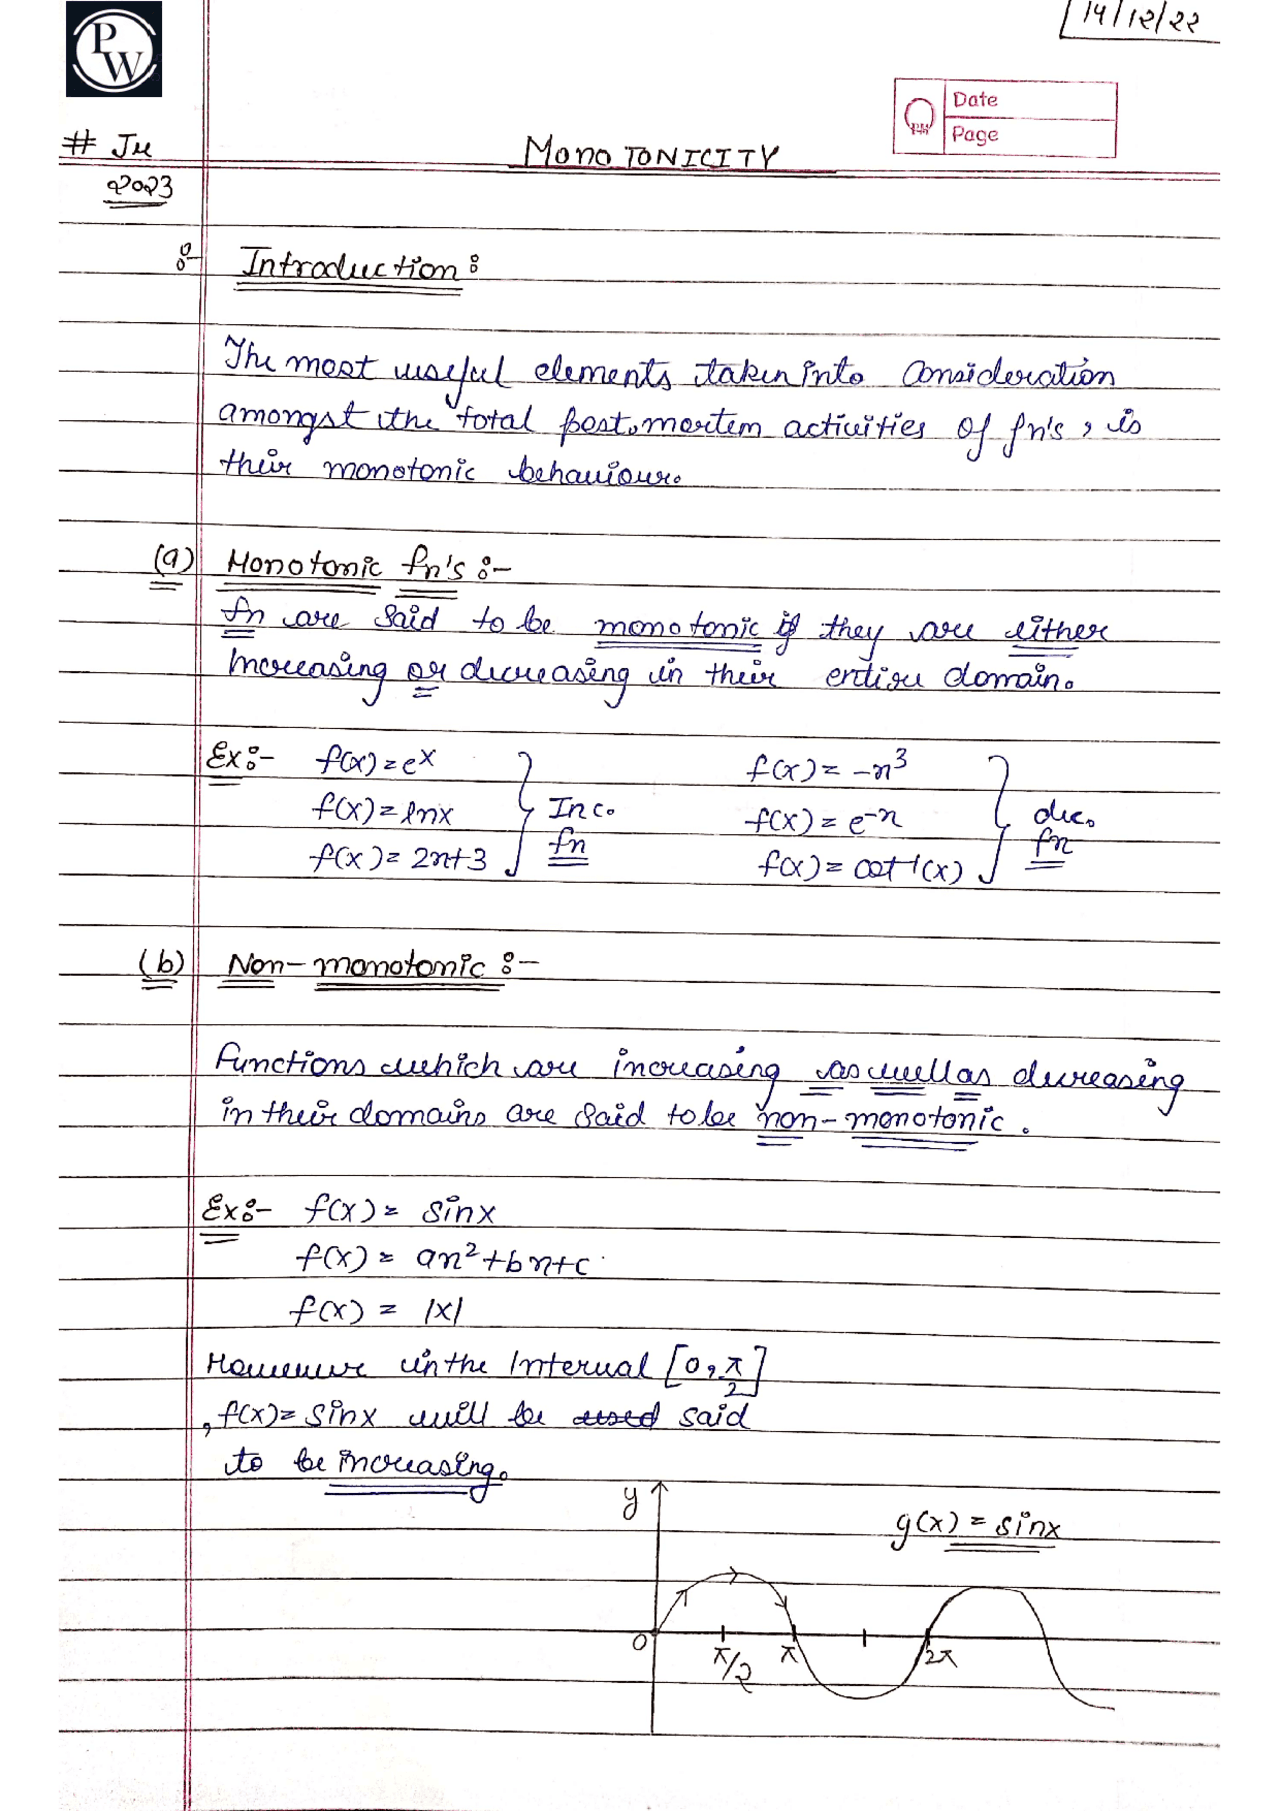 14/12/22
PW
Date
Page
# Jee
2023
MONOTONICITY
Introduction :
The most useful elements taken into consideration
amongst the total post-mortem activities of fn's, is
their monotonic behaviour.
(a) Monotonic fn's :-
fn are said to be monotonic if they are either
Increasing or decreasing in their entire domain.
Ex:- f(x) = e^x f(x) = -x³
f(x) = lnx Inc. f(x) = e^-x dec.
f(x) = 2x+3 fn f(x) = cot⁻¹(x) fn
(b) Non-monotonic :-
Functions which are increasing as well as decreasing
in their domains are said to be non-monotonic.
Ex:- f(x) = sinx
f(x) = ax²+bx+c
f(x) = |x|
However in the Interval [0, π/2]
, f(x) = sinx will be used said
to be increasing.
y
g(x) = sinx
0 π/2 π 2π